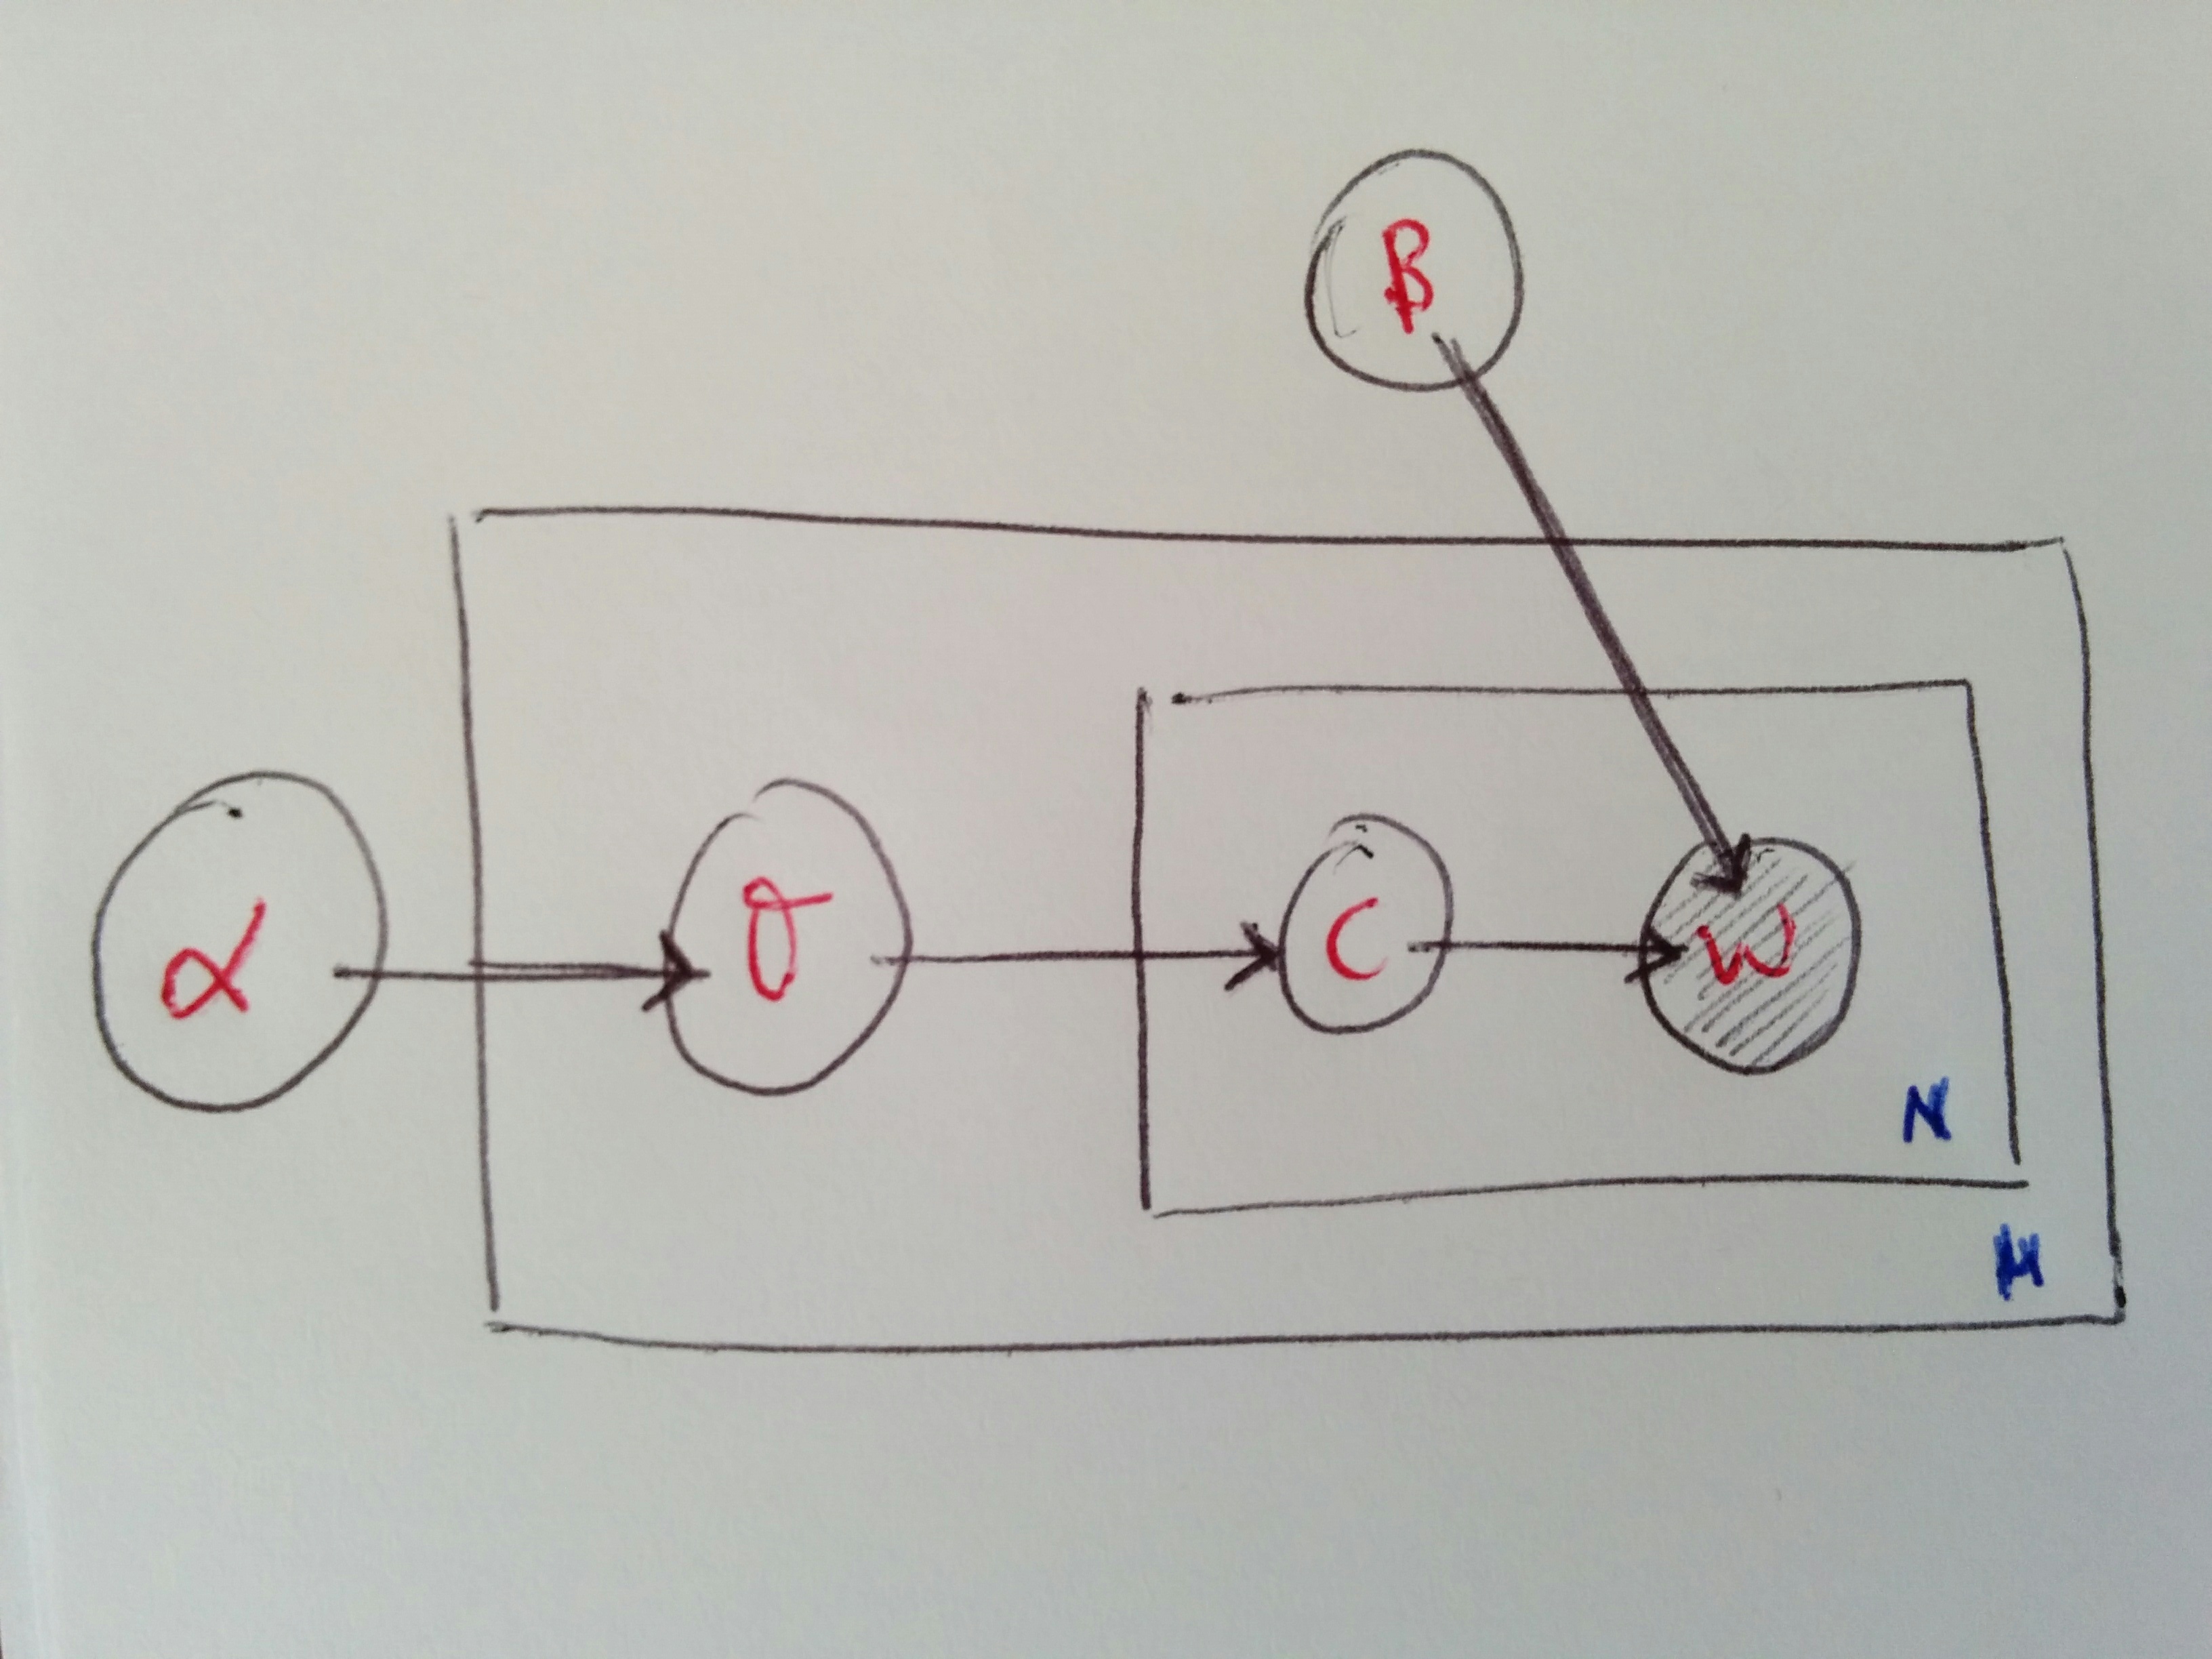 β
α σ C W
N
M